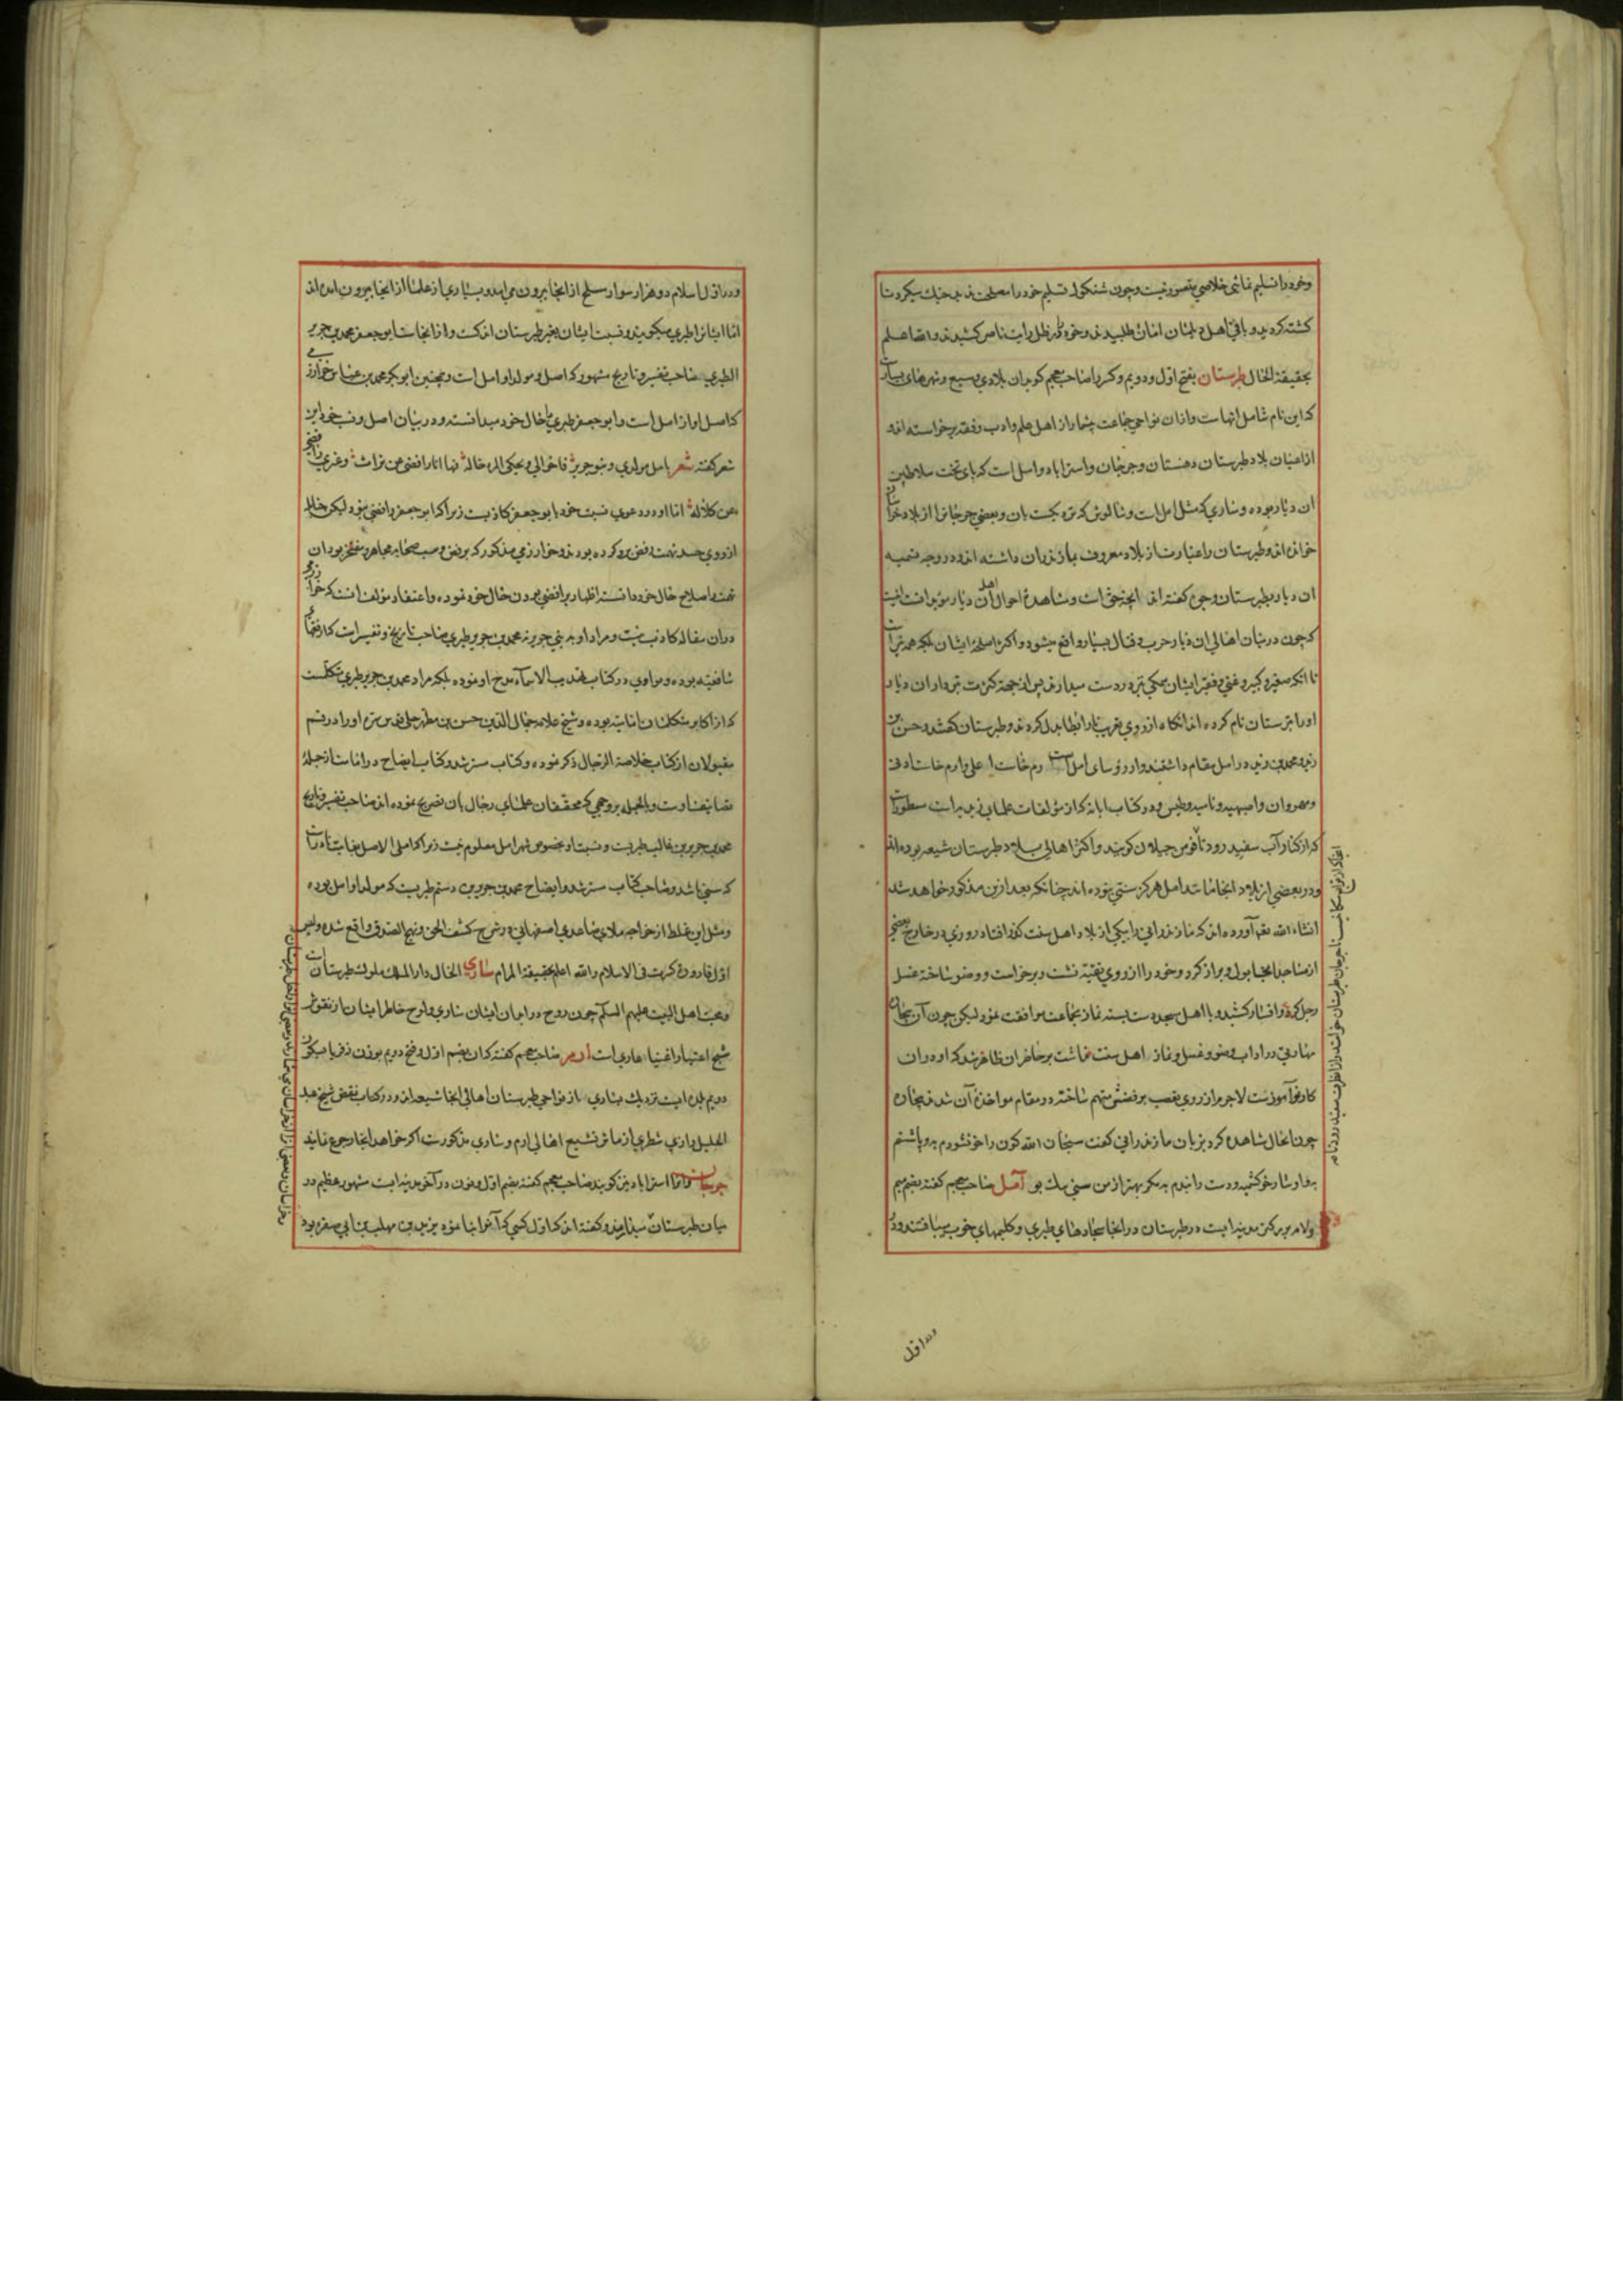 وخود را تسلیم نمائی خلاصی متصور نیست وچون شنکول تسلیم خود را مصلحت ندید جنك میکرد تا
کشته کردید و باقی اهل دیلمان امان طلبیدند وخود را در ظل رایت ناصر کشیدند والله اعلم
بحقیقة الحال طبرستان بفتح اول ودویم وکسر را صاحب معجم کوید ان بلادی وسیع وشهرهای بسیارست
که این نام شامل انهاست وازان نواحی جماعت بیشمار از اهل علم وادب وفقه برخواسته اند
از اعیان بلاد طبرستان دهستان وجرجان واستراباد وامل است که پای تخت سلاطین
ان دیار بوده وساری که مثل امل است وشالوش که نزدیکست بان وبعضی جرجان را از بلاد خراسان
خوانده اند وطبرستان را عبارت از بلاد معروف بمازندران داشته اند ودر وجه تسمیه
ان دیار بطبرستان وجوه کفته اند انچه حق است ومشاهدۀ احوال اهل آن دیار مؤید انست اینست
که چون در میان اهالی ان دیار حرب وقتال بسیار واقع میشود واکثر اسلحۀ ایشان بلکه همه تبر است
تا انکه صغیر وکبیر وغنی وفقیر ایشان همکی تبر در دست میدارند پس از جهة کثرت تبرداران دیار
او را تبرستان نام کرده اند انکاه از روی تعریب تا را بطا بدل کردند وطبرستان کفتند وحسن بن
زید ومحمد بن زید در امل مقام داشتند واز رؤسای امل است
ومهروان واصبهبد ونامیه وطمیس ودر کتاب ابانه که از مؤلفات علمای زیدیه است مسطورست
که از کنار آب سفید رود تا فومن جیلان کویند واکثر اهالی بلاد طبرستان شیعه بوده اند
ودر بعضی از بلاد انجا مانند امل هرکز سنی نبوده اند چنانکه بعد ازین مذکور خواهد شد
انشاء الله تعالی آورده اند که مازندرانی را بیکی از بلاد اهل سنت کذر افتاد روزی در خارج بعضی
از مساجد انجا بول وبراز کرد وخود را از روی تقیة نشست وبرخواست ووضو ساخته غسل
رجل کرد وافسار کشید وبا اهل مسجد دست بسته نماز بجماعت موافقت نمود لیکن چون آن بیچاره
مهارتی در اداب وضو وغسل ونماز اهل سنت نداشت بر حاضران ظاهر شد که او در ان
کار نوآموزست لاجرم از روی تعصب برفضش متهم ساخته در مقام مواخذۀ آن شدند بیچاره
چون انحال مشاهده کرد بزبان مازندرانی کفت سبحان الله کون را خو نشوردم به وپاشنم
به وافسار خو کشیدم ودست را بندم به مکر بهتر از من سنی سك بو آمل صاحب معجم کفته بضم میم
ولام بزرکتر مدینه ایست در طبرستان در انجا سجادهای طبری وکلیمهای خوب میبافتند ودر
ودر اول
ودر اول اسلام دو هزار سوار مسلح از انجا بیرون می آمد وبسیاری از علما از انجا بیرون آمده اند
اما ایشانرا طبری میکویند ونسبت ایشان بغیر طبرستان اندکست واز انجاست ابو جعفر محمد بن جریر
الطبری صاحب تفسیر وتاریخ مشهور که اصل ومولد او امل است وهمچنین ابو بکر محمد بن عباس خوارزمی
که اصل او از امل است وابو جعفر طبری را خال خود میدانسته ودر بیان اصل ونسب خود این
شعر کفته شعر بامل مولدی وبنو جریر فاخوالی ویحکی المرء خاله فها انا رافضی عن تراث وغیری رافضی
عن کلاله اما او در دعوی نسبت خود بابو جعفر کاذبست زیرا که ابو جعفر رافضی نبود لیکن حنابله
از روی حسد تهمت رفض برو کرده بودند وخوارزمی مذکور که برفض وسب صحابه مجاهر ومفتخر بود ان
تهمت را صلاح حال خود دانسته اظهار رافضی بودن خال خود نموده واعتقاد مؤلف انست که خوارزمی
در ان مقاله کاذب نیست ومراد او به بنی جریر نه محمد بن جریر طبری صاحب تاریخ وتفسیر است که از فقهاء
شافعیه بوده ونواوی در کتاب تهذیب الاسماء مدح او نموده بلکه مراد محمد بن جریر طبری متکلمست
که از اکابر متکلمان امامیه بوده وشیخ علامه جمال الدین حسن بن مطهر حلی قدس سره او را در قسم
مقبولان از کتاب خلاصة الرجال ذکر نموده وکتاب مسترشد وکتاب ایضاح در امامت از جملۀ
تصانیف اوست وبالجمله بر وجهی که محققان علمای رجال بان تصریح نموده اند صاحب تفسیر وتاریخ
محمد بن جریر بن غالب طبریست ونسبت او بخصوص شهر امل معلوم نیست زیرا که املی الاصل بغایت نادرست
که سنی باشد وصاحب کتاب مسترشد وایضاح محمد بن جریر بن رستم طبریست که مولد او امل بوده
ومثل این غلط از خواجه ملای صاعدی اصفهانی در شرح کشف الحق ونهج الصدق واقع شده ولیس
اول قارورة کسرت فی الاسلام والله اعلم بحقیقة المرام ساری الحال دار الملك ملوك طبرستان است
ومحبت اهل البیت علیهم السلام چون روح در ابدان ایشان ساری ولوح خاطر ایشان از نقوش
شیخ اعتبار اغنیا عاری است ارم صاحب معجم کفته که ان بضم اول وفتح دویم بوزن زفر یا بسکون
دویم بلده ایست نزدیك بساری از نواحی طبرستان اهالی انجا شیعه اند ودر کتاب نقض شیخ عبد
الجلیل رازی شطری از ماثر تشیع اهالی ارم وساری مذکورست اکر خواهد انجا رجوع نماید
جرجان وانرا استراباد نیز کویند صاحب معجم کفته بضم اول ونون در آخر مدینه ایست مشهور عظیم در
میان طبرستان وکفته اند که اول کسی که آنرا بنا نموده یزید بن مهلب بن ابی صفره بود